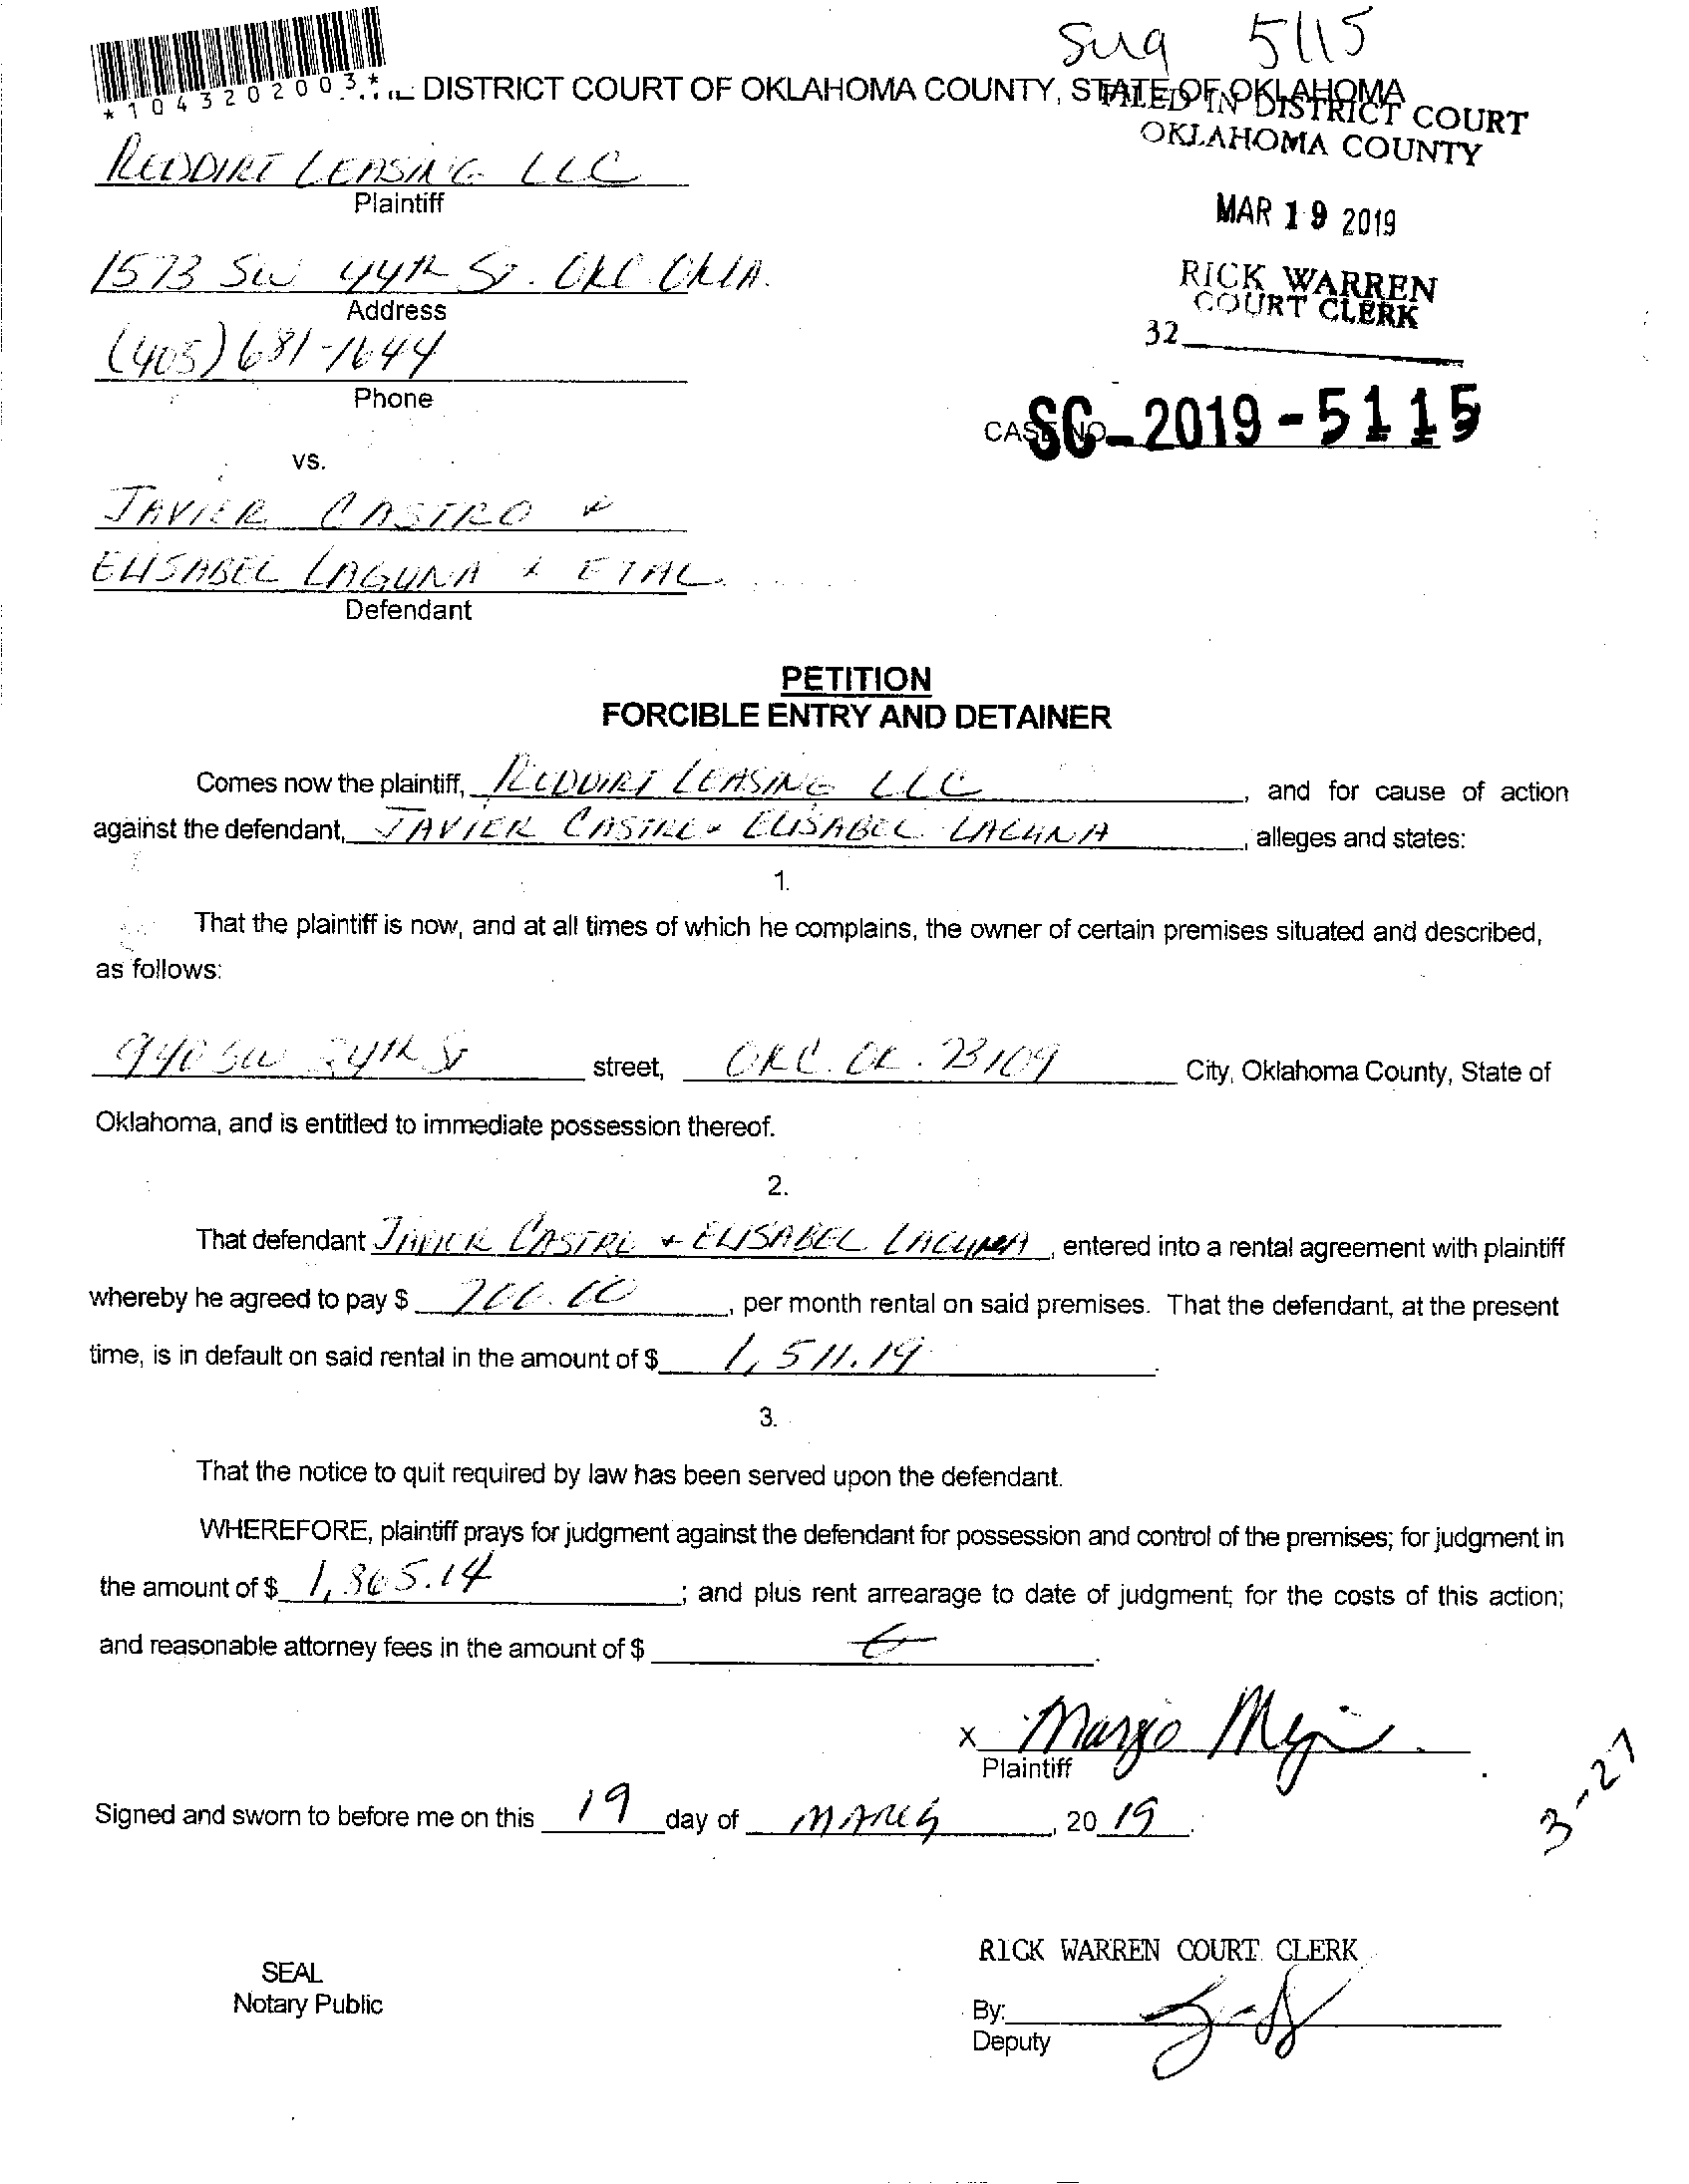 Sug 5115
*1043202003*
DISTRICT COURT OF OKLAHOMA COUNTY, STATE OF OKLAHOMA
FILED IN DISTRICT COURT
OKLAHOMA COUNTY
REDDIRT LEASING LLC
Plaintiff
MAR 19 2019
1573 SW 44th ST. OKC OKLA.
Address
RICK WARREN
COURT CLERK
32
(405) 681-1644
Phone
CASE NO. SC-2019-5115
vs.
JAVIER CASTRO &
ELISABEL LAGUNA & ETAL.
Defendant
PETITION
FORCIBLE ENTRY AND DETAINER
Comes now the plaintiff, REDDIRT LEASING LLC, and for cause of action
against the defendant, JAVIER CASTRO & ELISABEL LAGUNA, alleges and states:
1.
That the plaintiff is now, and at all times of which he complains, the owner of certain premises situated and described,
as follows:
940 SW 24th ST street, OKC. OK. 73109 City, Oklahoma County, State of
Oklahoma, and is entitled to immediate possession thereof.
2.
That defendant JAVIER CASTRO & ELISABEL LAGUNA, entered into a rental agreement with plaintiff
whereby he agreed to pay $ 700.00, per month rental on said premises. That the defendant, at the present
time, is in default on said rental in the amount of $ 1,511.19.
3.
That the notice to quit required by law has been served upon the defendant.
WHEREFORE, plaintiff prays for judgment against the defendant for possession and control of the premises; for judgment in
the amount of $ 1,865.14; and plus rent arrearage to date of judgment; for the costs of this action;
and reasonable attorney fees in the amount of $
X Margo
Plaintiff
3-27
Signed and sworn to before me on this 19 day of MARCH, 20 19.
RICK WARREN COURT CLERK
SEAL
Notary Public
By:
Deputy